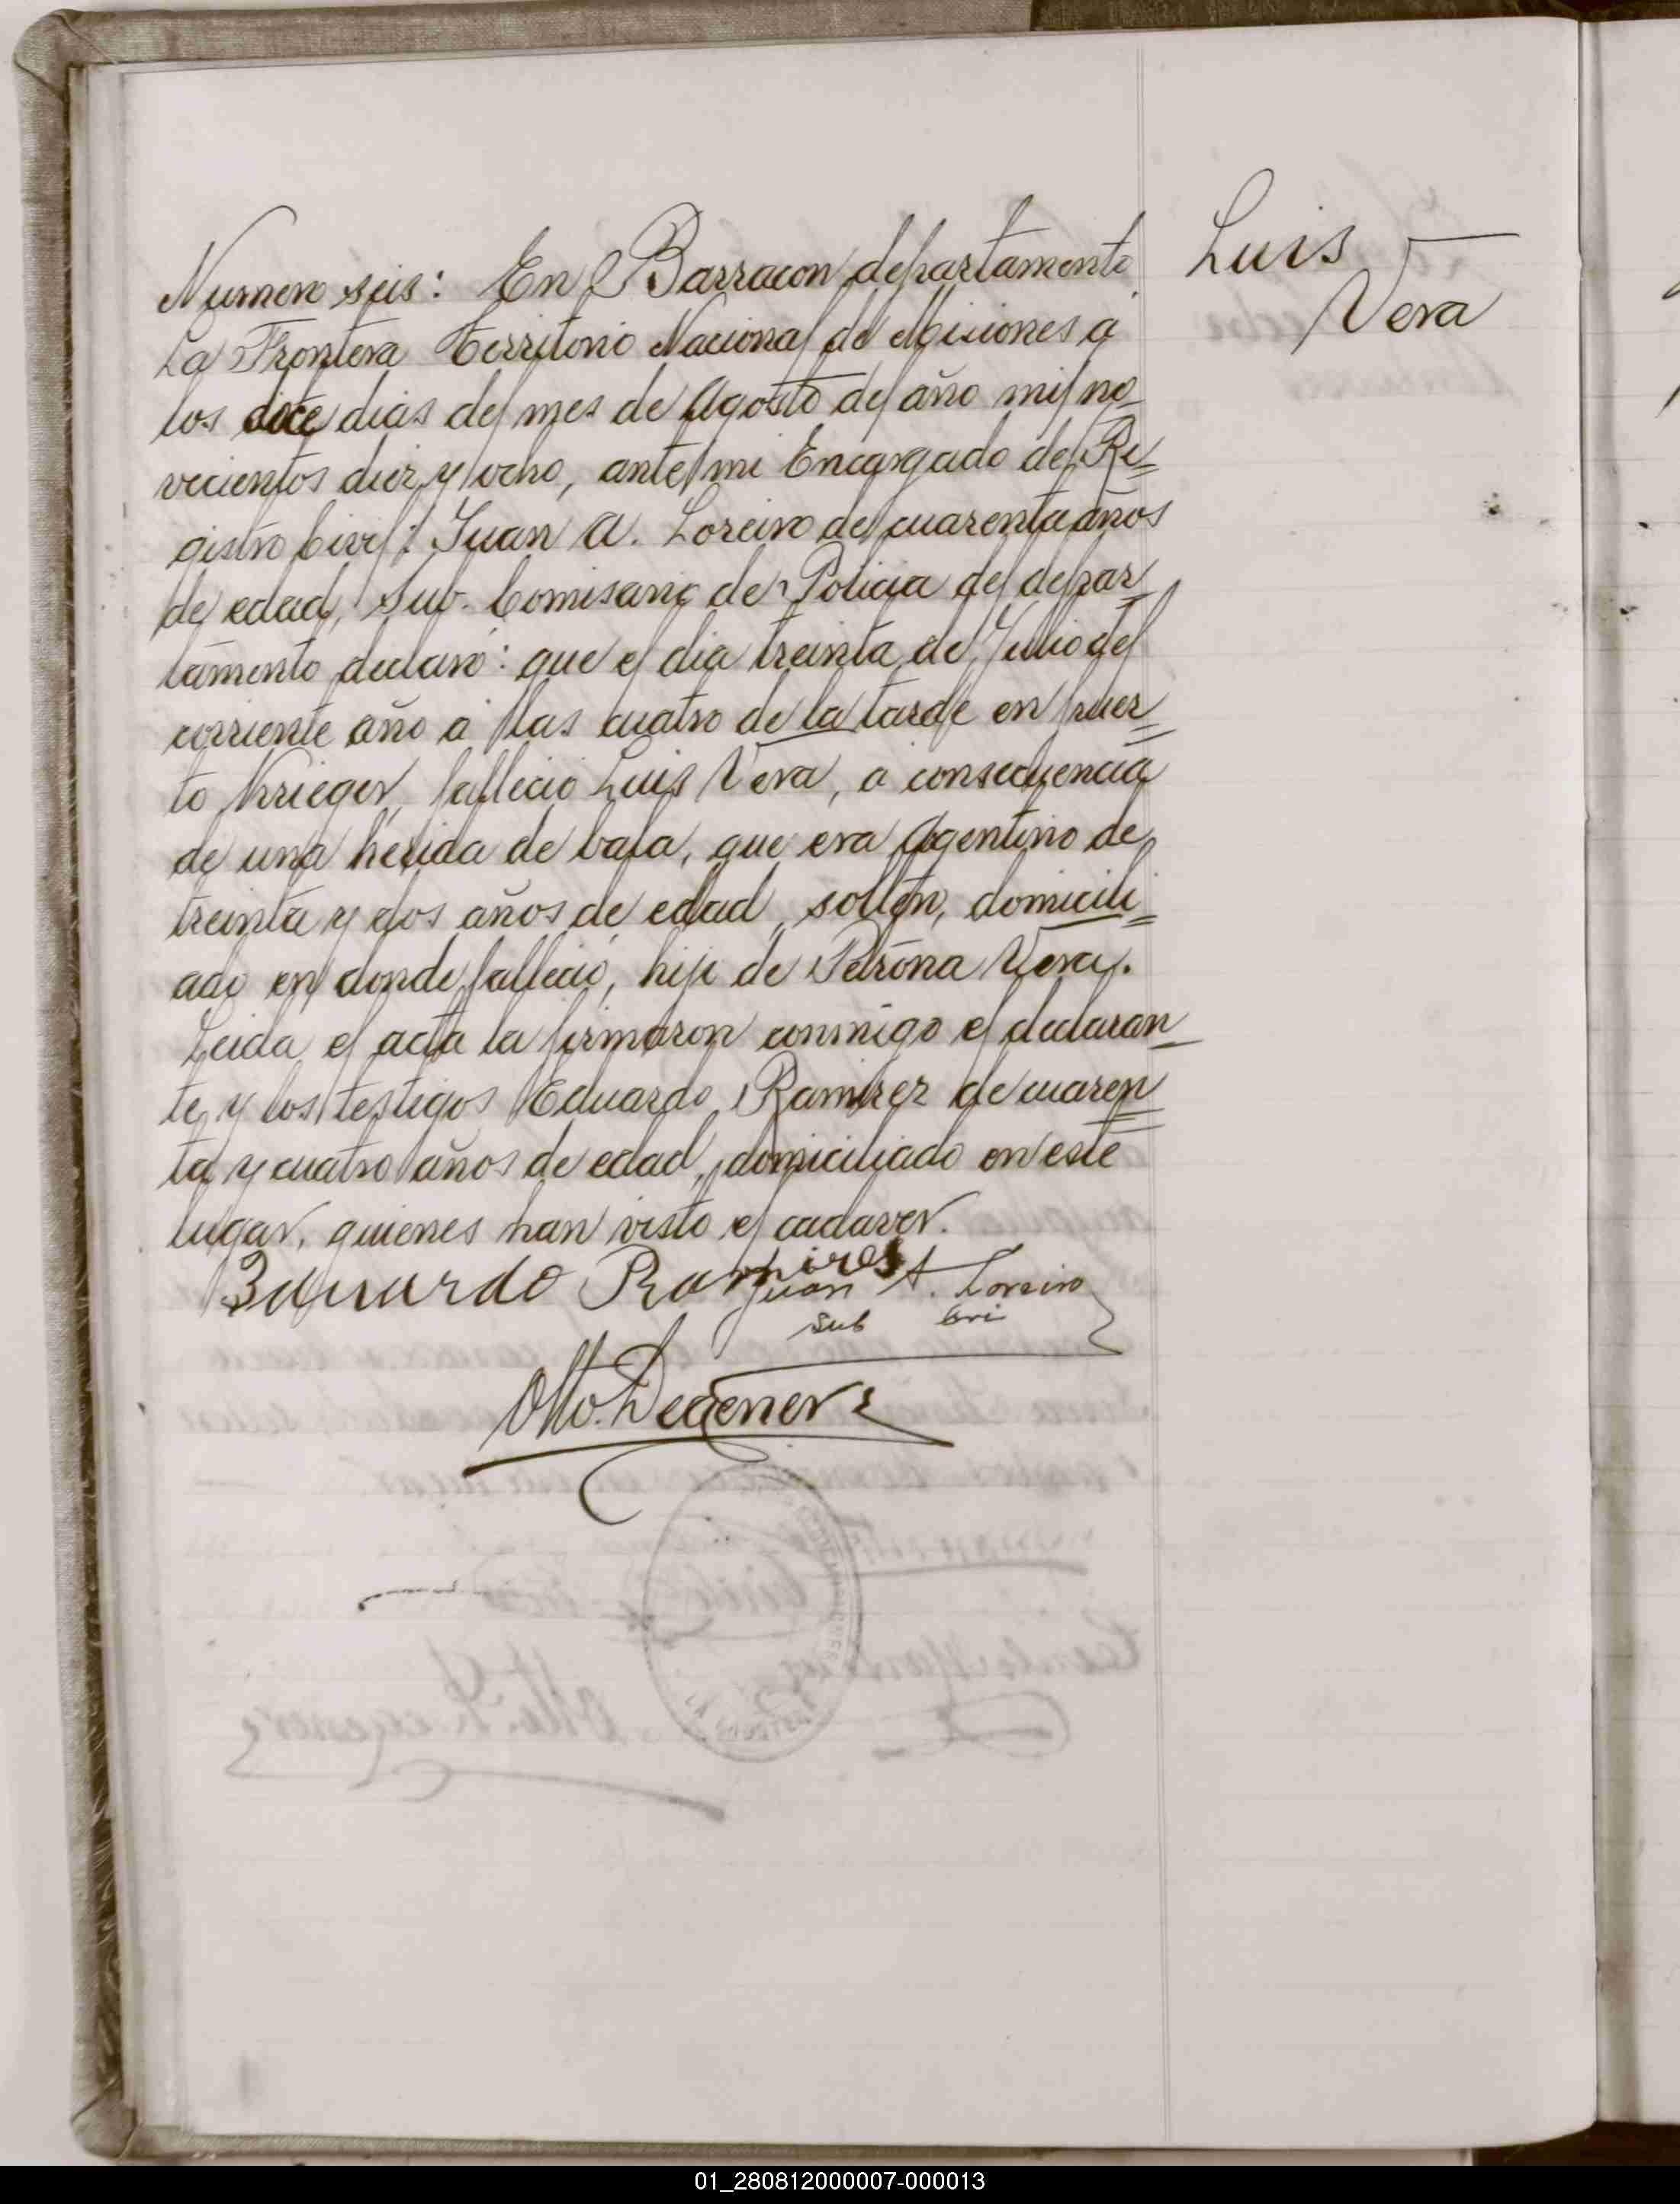 Luis
Vera
Numero seis: En Barracon departamento
La Frontera Territorio Nacional de Misiones á
los doce dias del mes de Agosto del año mil no-
vecientos diez y ocho, ante mi Encargado del Re=
gistro Civil: Juan A. Loreiro de cuarenta años
de edad, Sub. Comisario de Policia del depar-
tamento declaró: que el dia treinta de Julio del
corriente año á las cuatro de la tarde en puer=
to Krieger, fallecio Luis Vera, a consecuencia
de una herida de bala, que era Agentino de
treinta y dos años de edad, soltero, domicili=
ado en donde fallecio, hijo de Petrona Vera.
Leida el acta la firmaron conmigo el declaran=
te y los testigos Eduardo Ramirez de cuaren=
ta y cuatro años de edad, domiciliado en este
lugar, quienes han visto el cadaver.
Eduardo Ramires
Juan A. Loreiro
Sub Cri
Otto Degener
01_280812000007-000013